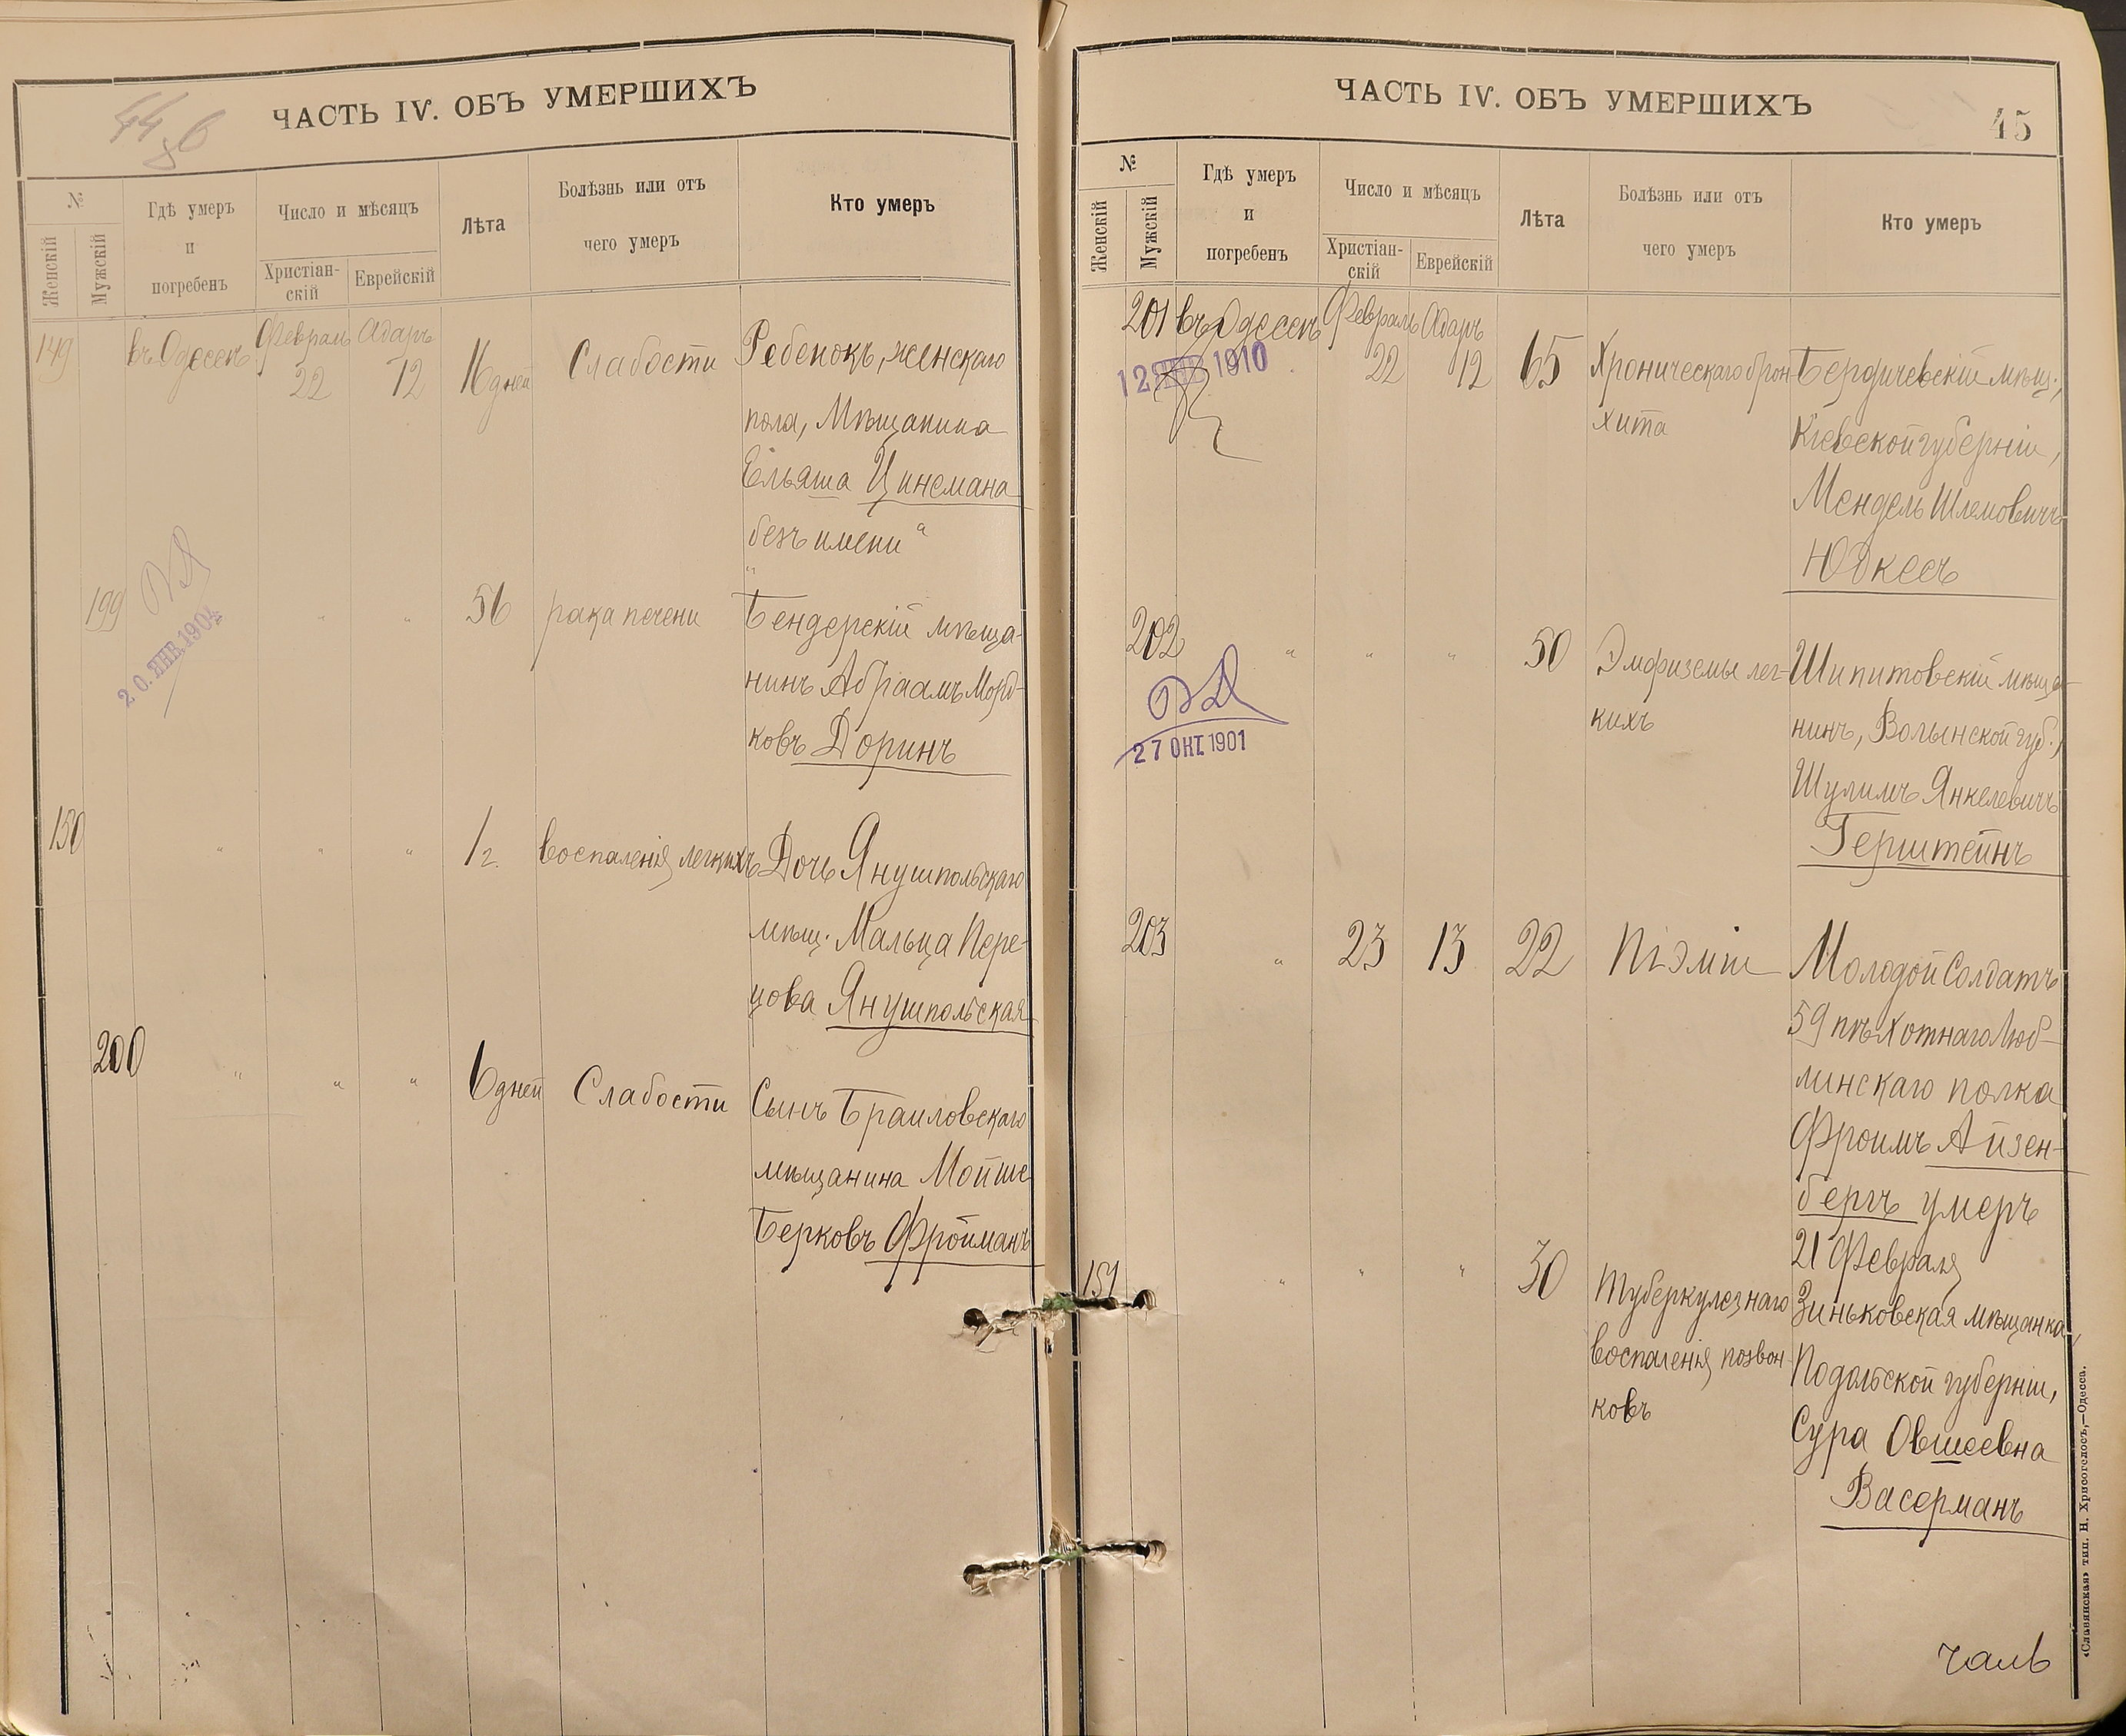 ЧАСТЬ IV. ОБЪ УМЕРШИХЪ
№
Женскій
Мужскій
Гдѣ умеръ
и
погребенъ
Число и мѣсяцъ
Христіан-
скій
Еврейскій
Лѣта
Болѣзнь или отъ
чего умеръ
Кто умеръ
149
въ Одессѣ
Февраль
22
Адаръ
12
16 дней
Слабости
Ребенокъ, женскаго
пола, Мѣщанина
Ельяша Цинемана
безъ имени"
199
20. ЯНВ. 1904
"
"
56
рака печени
Бендерскій мѣща-
нинъ Абраамъ Морд-
ковъ Доринъ
150
"
"
"
1 г.
воспаленія легкихъ
Дочь Янушпольскаго
мѣщ. Мальца Пере-
цова Янушпольская
200
"
"
"
6 дней
Слабости
Сынъ Браиловскаго
мѣщанина Мойше
Берковъ Фройманъ
ЧАСТЬ IV. ОБЪ УМЕРШИХЪ
45
№
Женскій
Мужскій
Гдѣ умеръ
и
погребенъ
Число и мѣсяцъ
Христіан-
скій
Еврейскій
Лѣта
Болѣзнь или отъ
чего умеръ
Кто умеръ
201
въ Одессѣ
12 1910
Февраль
22
Адаръ
12
65
Хроническаго брон-
хита
Бердичевскій мѣщ.,
Кіевской губерніи,
Мендель Шлемовичъ
Юдкесъ
202
27 ОКТ. 1901
"
"
"
50
Эмфиземы лег-
кихъ
Шипитовскій мѣща-
нинъ, Волынской губ.,
Шулимъ Янкелевичъ
Герштейнъ
203
"
23
13
22
Піэміи
Молодой Солдатъ
59 пѣхотнаго Люб-
линскаго полка
Фроимъ Айзен-
бергъ умеръ
21 Февраля
151
"
"
"
30
Туберкулезнаго
воспаленія позвон-
ковъ
Зиньковская мѣщанка,
Подольской губерніи,
Сура Овшеевна
Васерманъ
«Славянская» тип. Н. Хрисогелосъ,—Одесса.